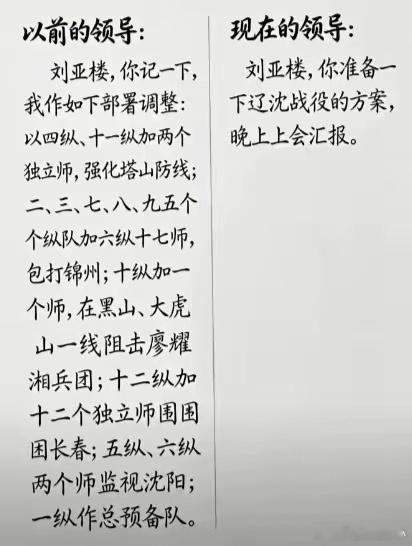 以前的领导:
刘亚楼,你记一下,
我作如下部署调整:
以四纵、十一纵加两个
独立师,强化塔山防线;
二、三、七、八、九五个
个纵队加六纵十七师,
包打锦州;十纵加一
个师,在黑山、大虎
山一线阻击廖耀
湘兵团;十二纵加
十二个独立师围围
困长春;五纵、六纵
两个师监视沈阳;
一纵作总预备队。
现在的领导:
刘亚楼,你准备一
下辽沈战役的方案,
晚上上会汇报。